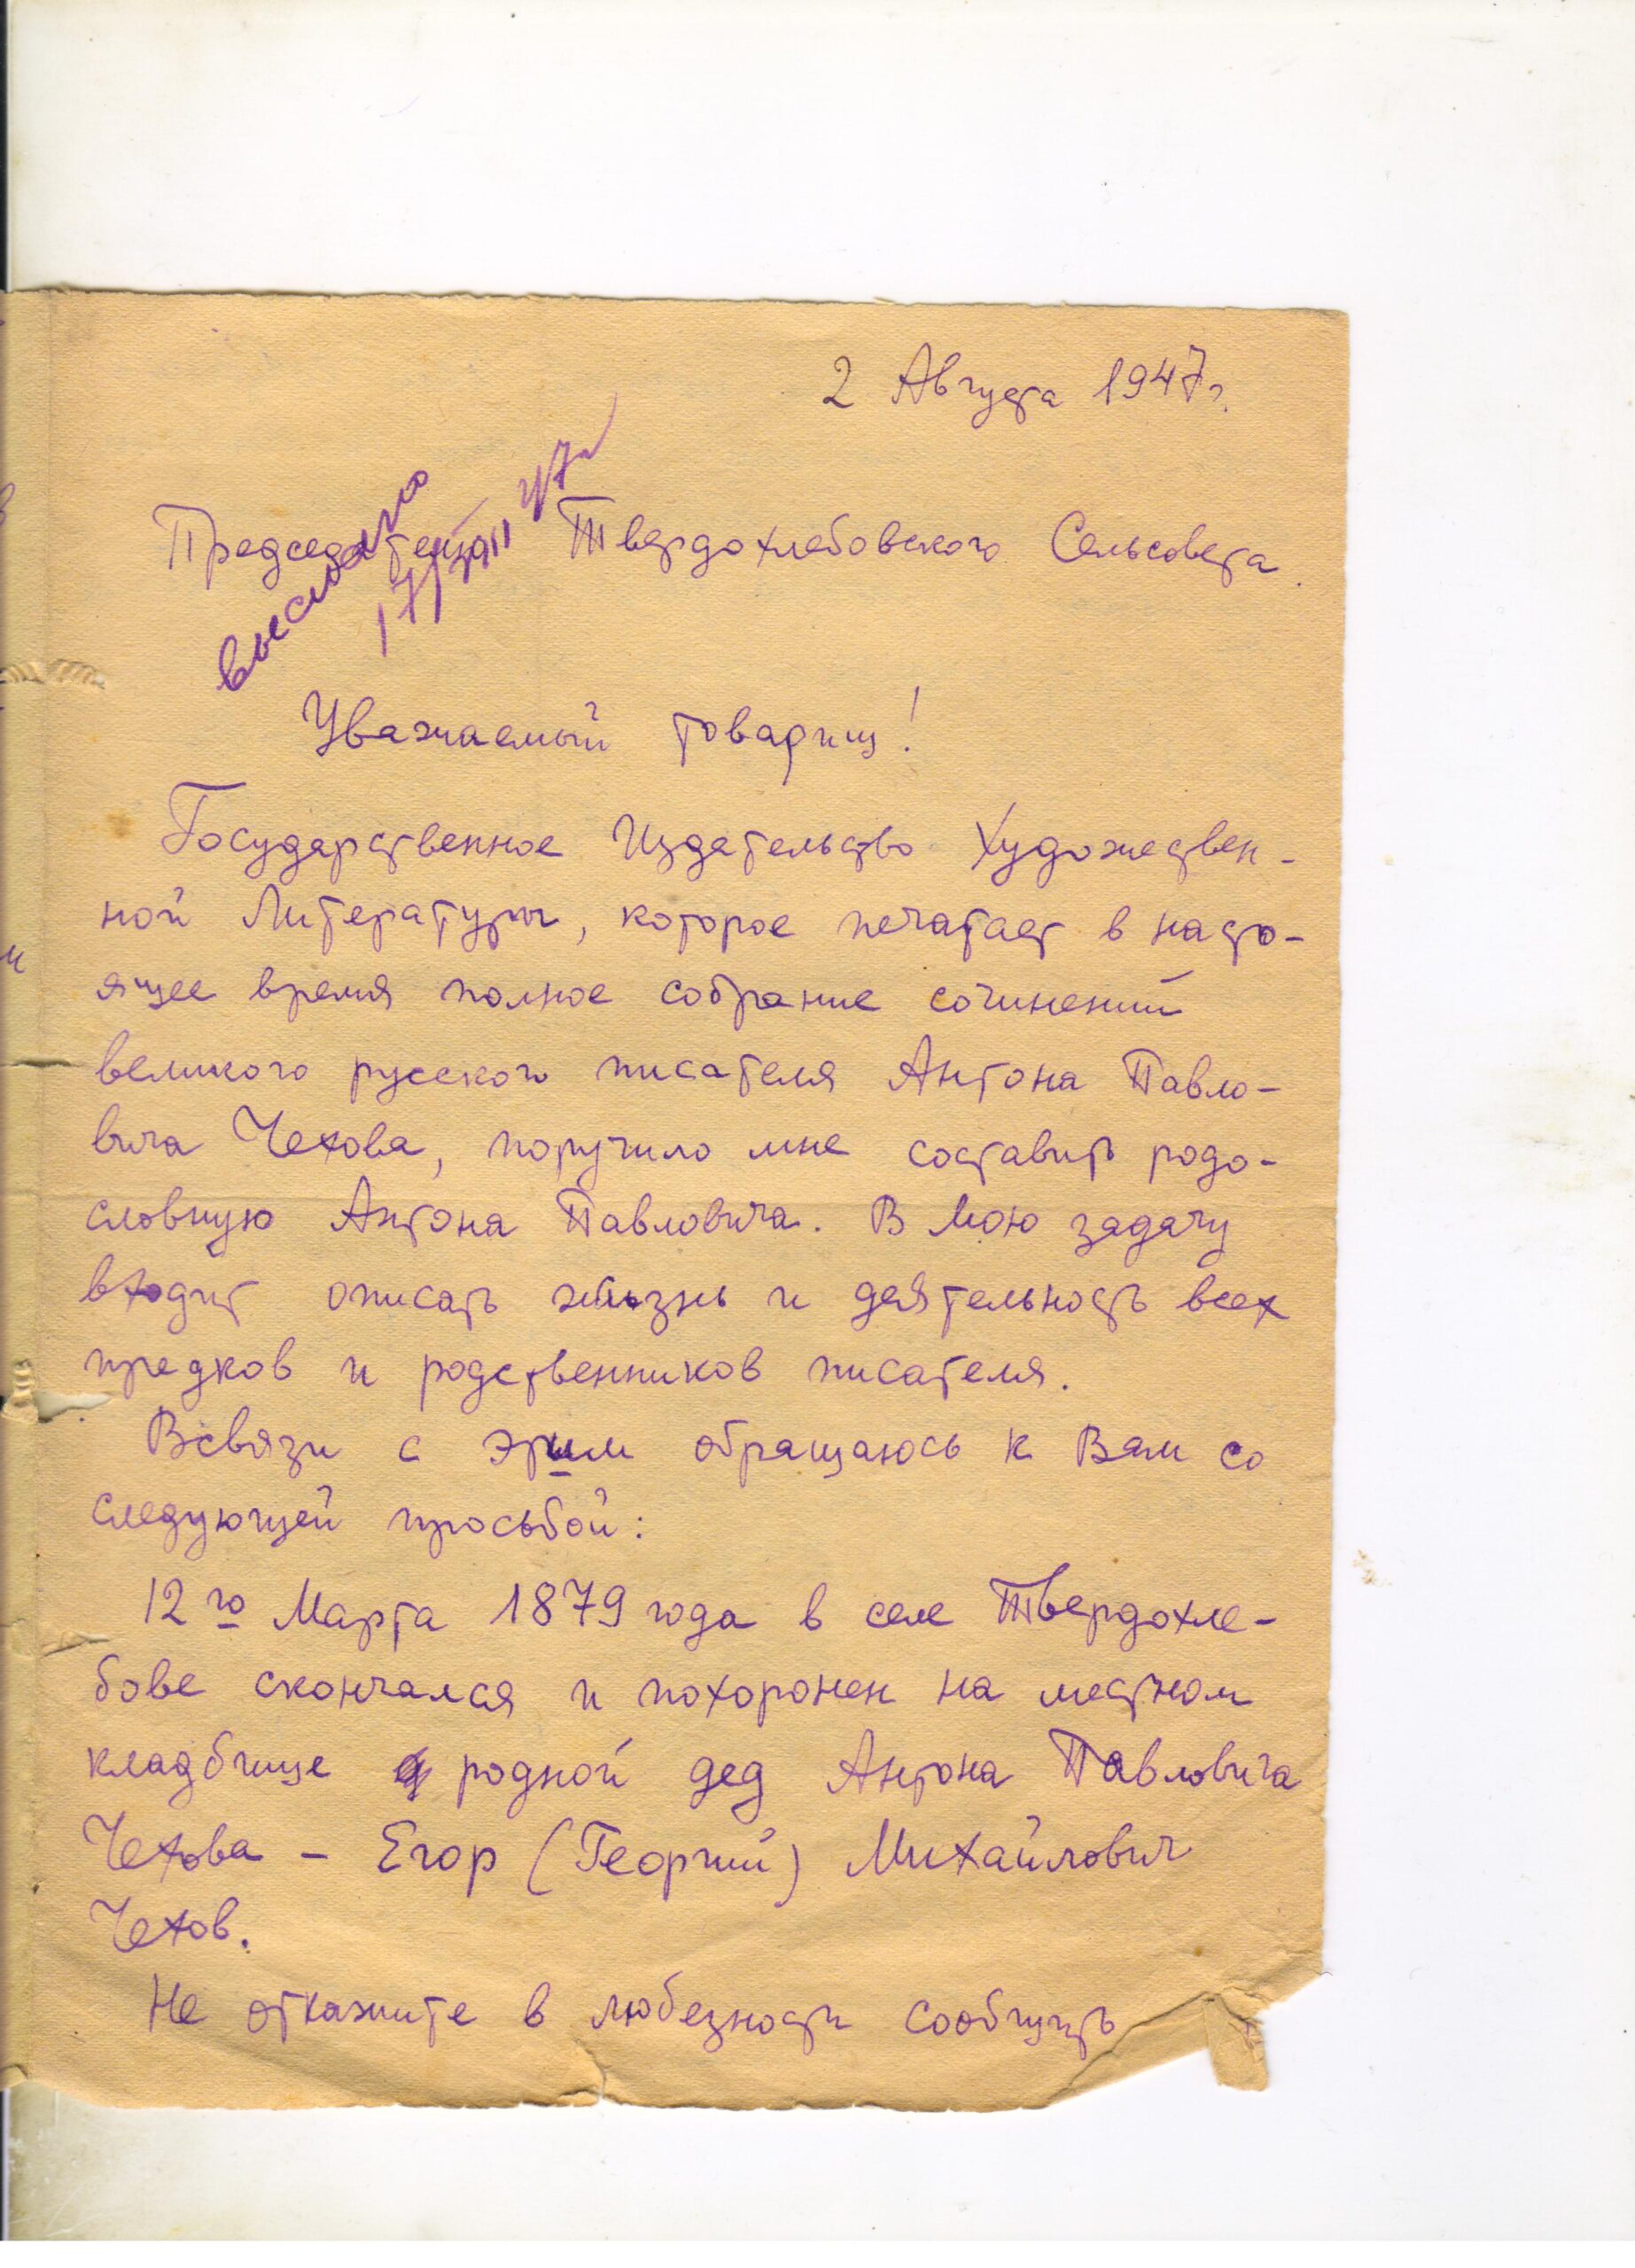 2 Августа 1947 г.
Председателю Твердохлебовского Сельсовета.
выслано
17/VIII 47 г
Уважаемый товарищ!
Государственное Издательство Художествен-
ной Литературы, которое печатает в насто-
ящее время полное собрание сочинений
великого русского писателя Антона Павло-
вича Чехова, поручило мне составить родо-
словную Антона Павловича. В мою задачу
входит описать жизнь и деятельность всех
предков и родственников писателя.
Всвязи с этим обращаюсь к Вам со
следующей просьбой:
12го Марта 1879 года в селе Твердохле-
бове скончался и похоронен на местном
кладбище родной дед Антона Павловича
Чехова – Егор (Георгий) Михайлович
Чехов.
Не откажите в любезности сообщить